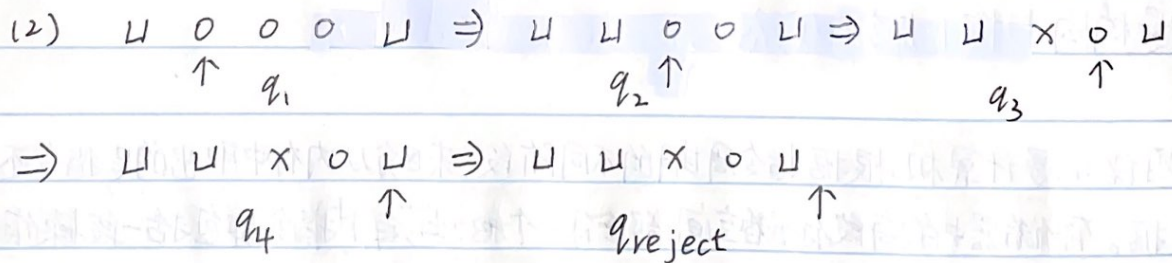 (2) ⊔ 0 0 0 ⊔ ⇒ ⊔ ⊔ 0 0 ⊔ ⇒ ⊔ ⊔ x 0 ⊔
↑ q₁ q₂ ↑ q₃ ↑
⇒ ⊔ ⊔ x 0 ⊔ ⇒ ⊔ ⊔ x 0 ⊔
q₄ ↑ qreject ↑